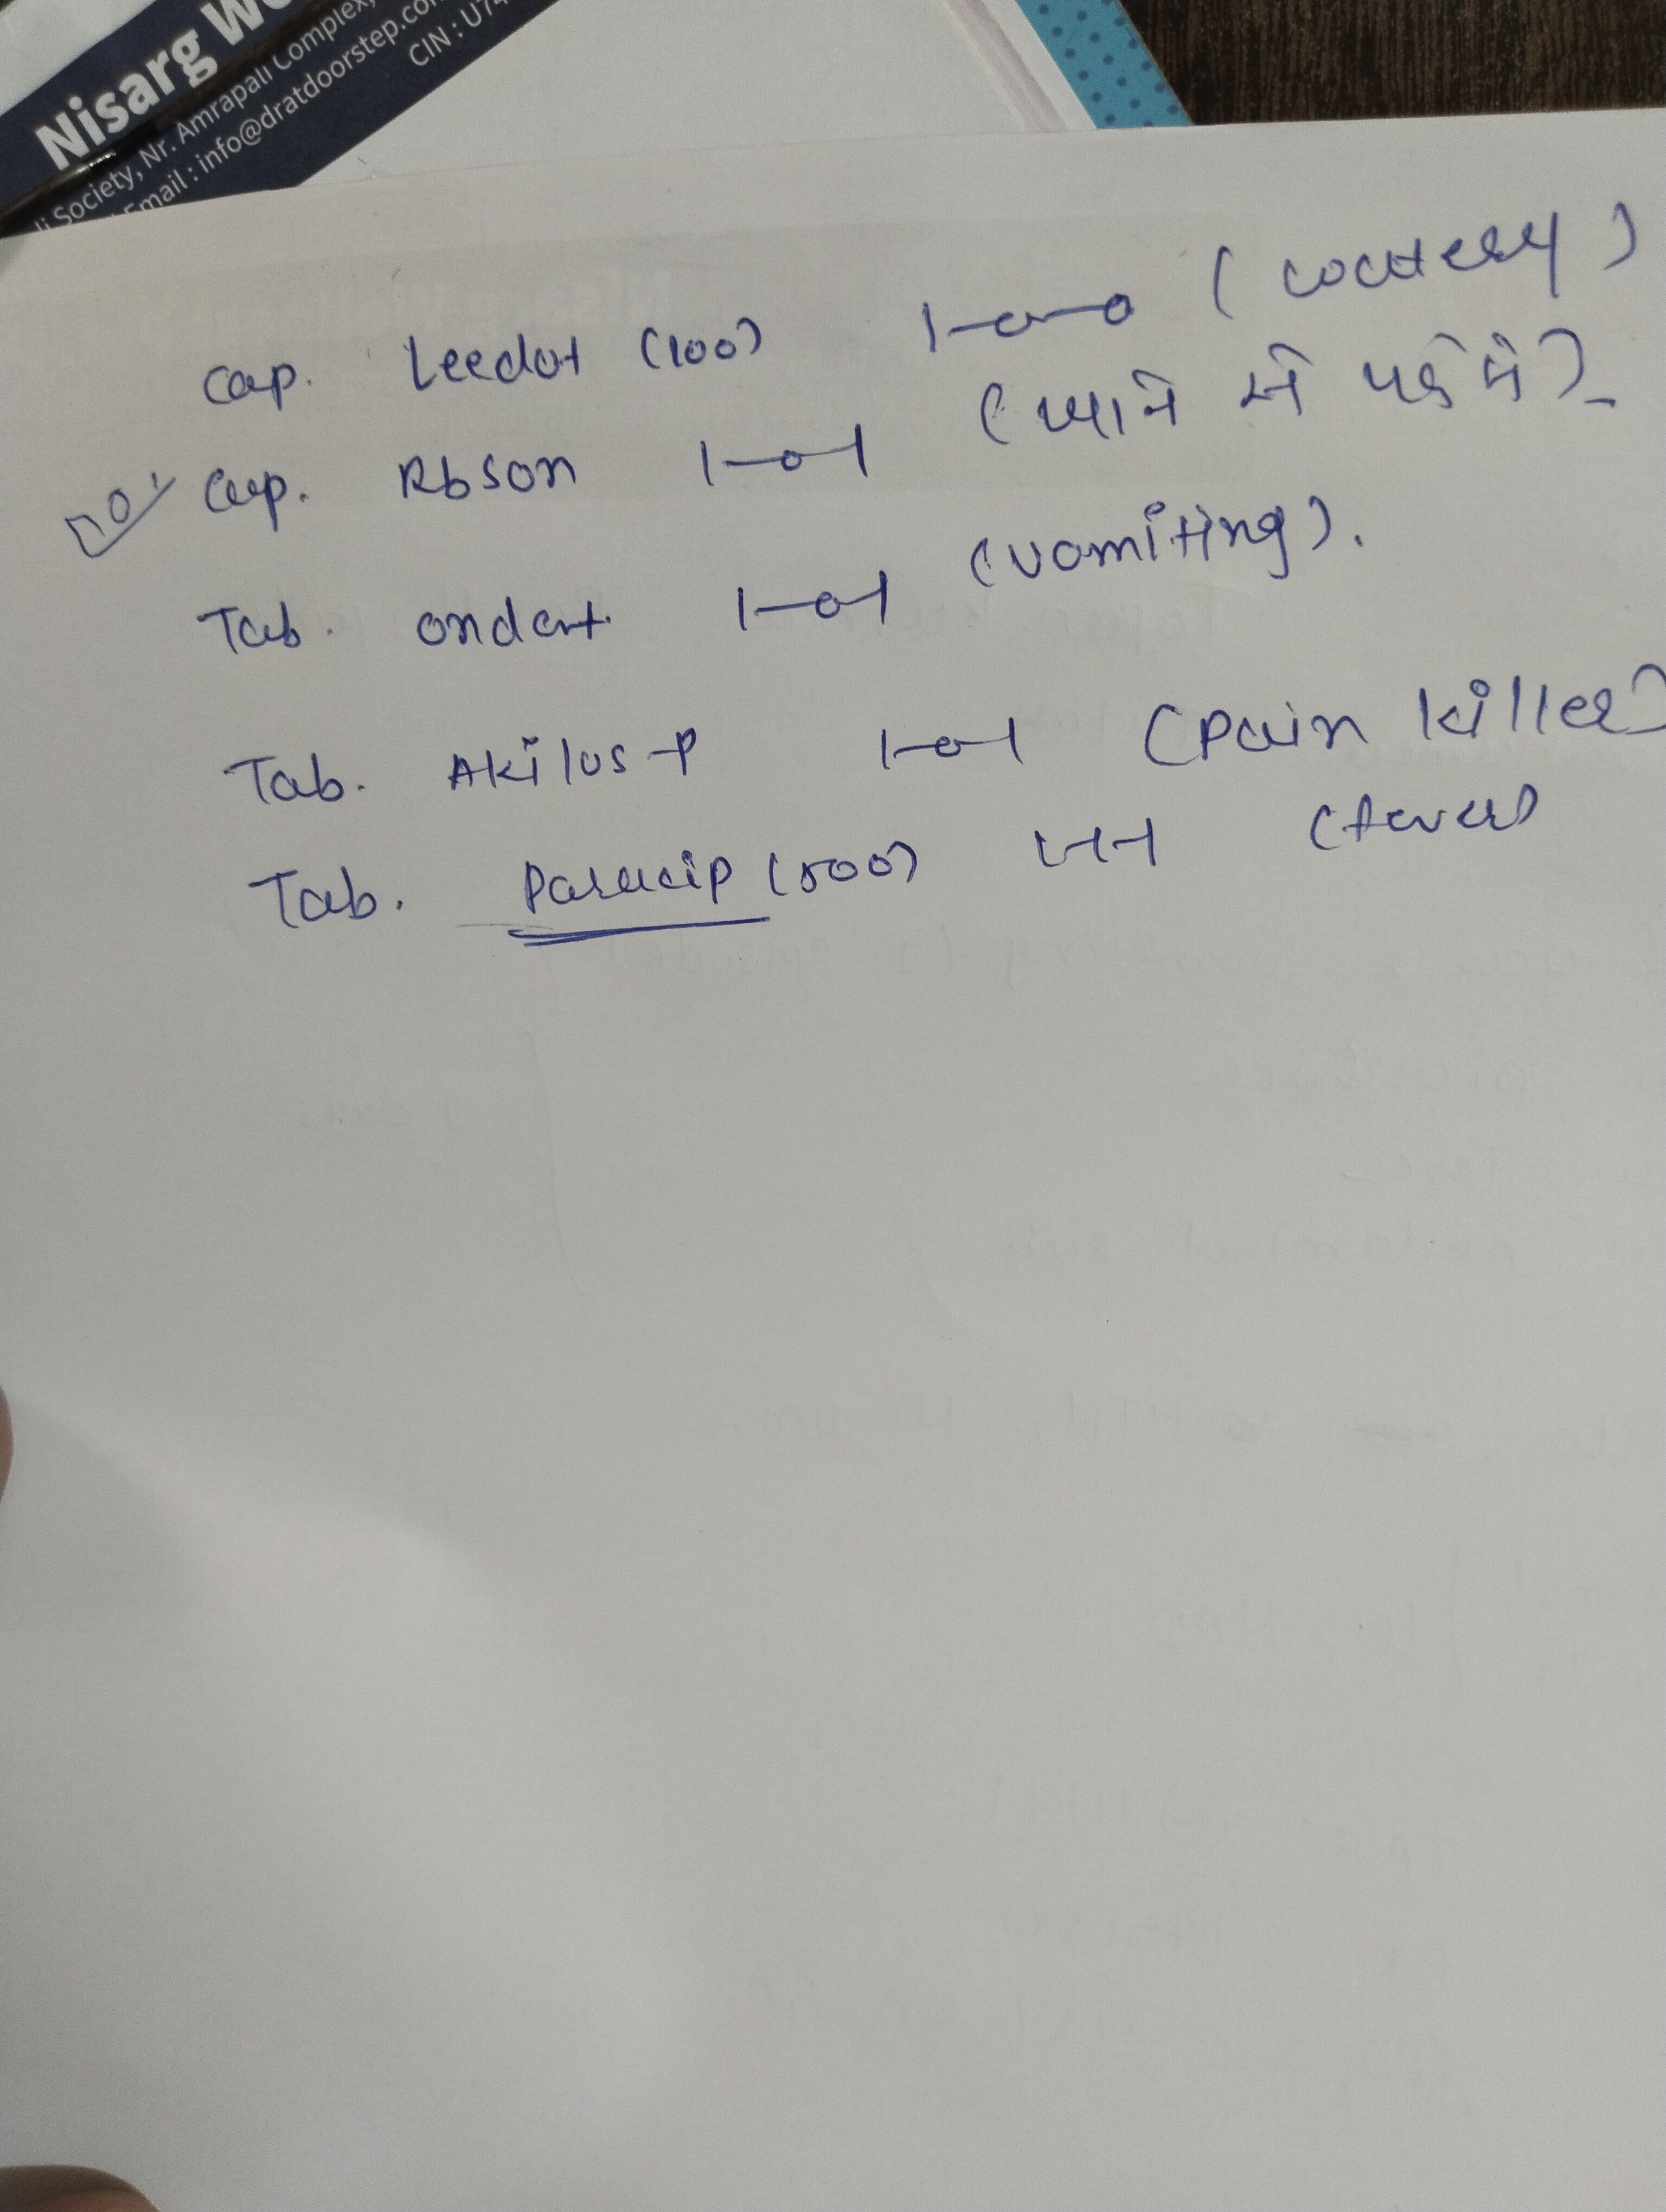 Nisarg W
i Society, Nr. Amrapali Complex,
Email : info@dratdoorstep.co
CIN : U74
Cap. Leedot (100) 1-0-0
Cap. Rbson 1-0-1 (खाने से पहले)
Tab. ondent 1-0-1 (vomiting).
Tab. Akilos-P 1-0-1 (Pain killer)
Tab. Paracip (500) 1-1-1 (fever)